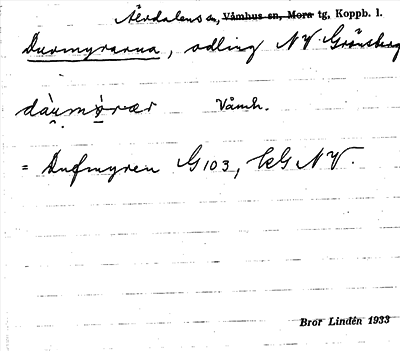 Älvdalens sn, Våmhus sn, Mora tg, Koppb. l.
Duvmyrarna, odling NV Gråsberg
dàumọ̀rær Våmh.
= Dufmyren G103, kG NV.
Bror Lindén 1933